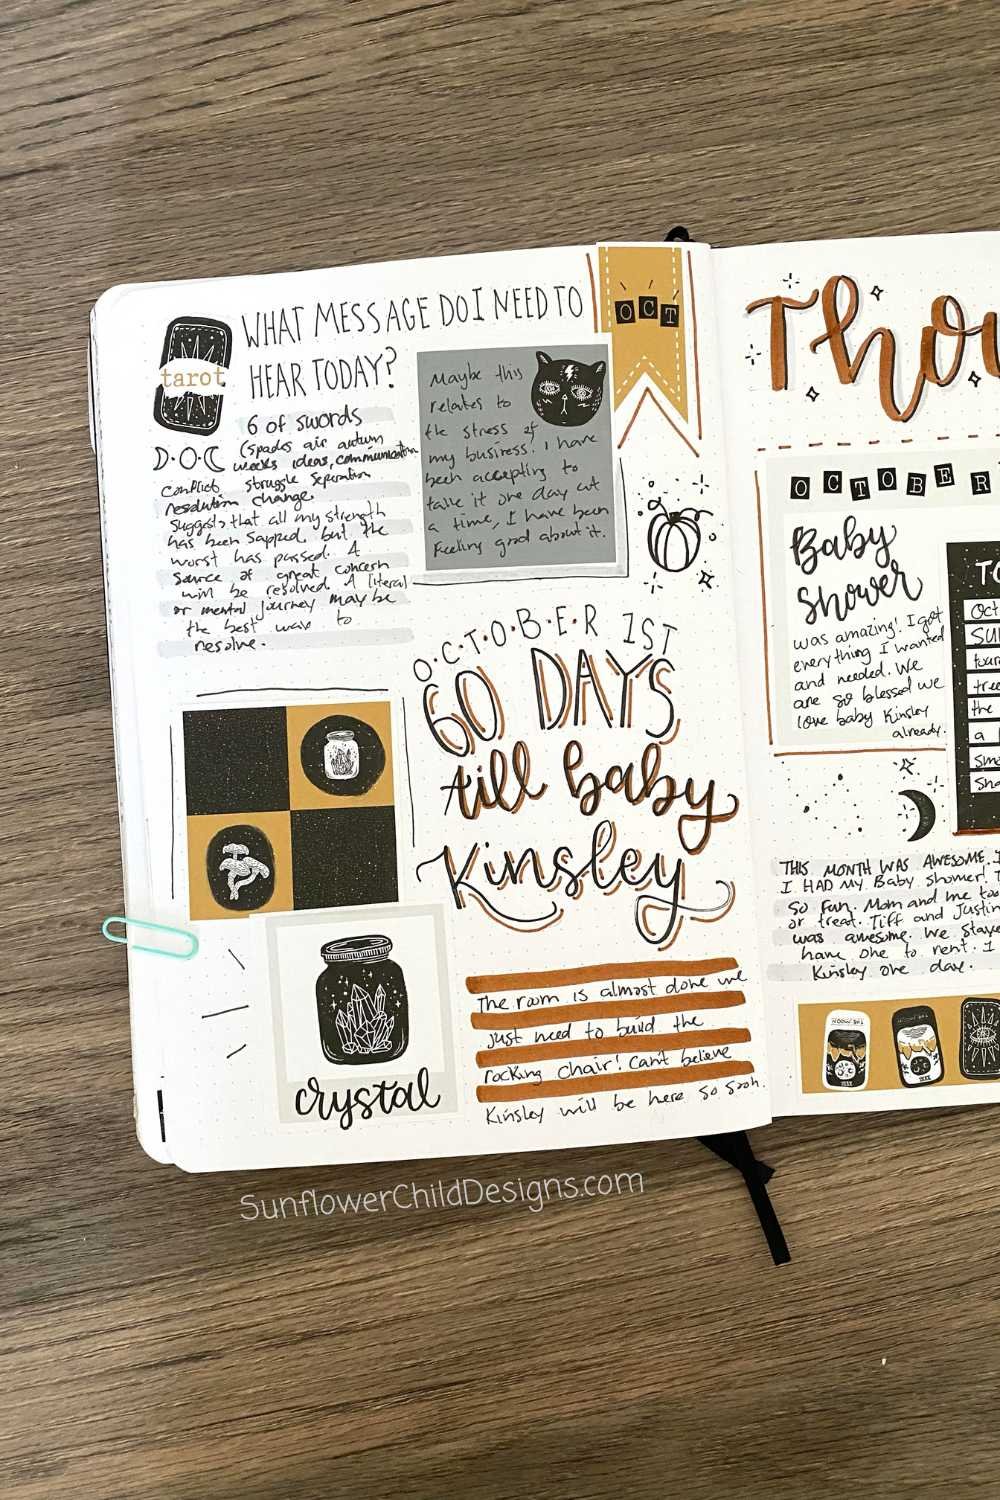 WHAT MESSAGE DO I NEED TO
HEAR TODAY?
tarot
6 of swords
(spades air autumn
weeks ideas, communication
conflict struggle separation
resolution change.
Suggests that all my strength
has been sapped, but the
worst has passed. A
source of great concern
will be resolved. A literal
or mental journey may be
the best way to
resolve.
OCT
Maybe this
relates to
the stress of
my business. I have
been accepting to
take it one day at
a time, I have been
feeling good about it.
O·C·T·O·B·E·R 1ST
60 DAYS
till baby
Kinsley
crystal
The room is almost done we
just need to build the
rocking chair! Can't believe
Kinsley will be here so soon.
Thou
OCTOBER
Baby
Shower
was amazing! I got
everything I wanted
and needed. We
are so blessed we
love baby Kinsley
already.
TO
Oct
SUN
four
tree
the
a
Sma
Sha
THIS MONTH WAS AWESOME. I
I HAD my Baby shower! T
So fun. Mom and me too
or treat. Tiff and Justin
was awesome. We stay
have one to rent. I
Kinsley one day.
SunflowerChildDesigns.com